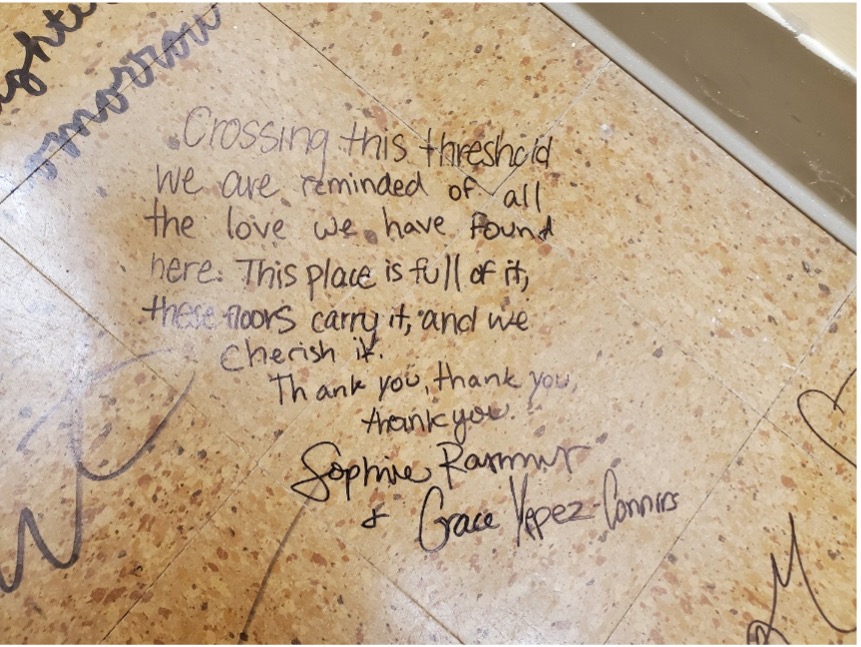 omorrow
Crossing this threshold
we are reminded of all
the love we have found
here. This place is full of it,
these floors carry it, and we
cherish it.
Thank you, thank you,
thank you.
Sophie
& Grace Yepez-